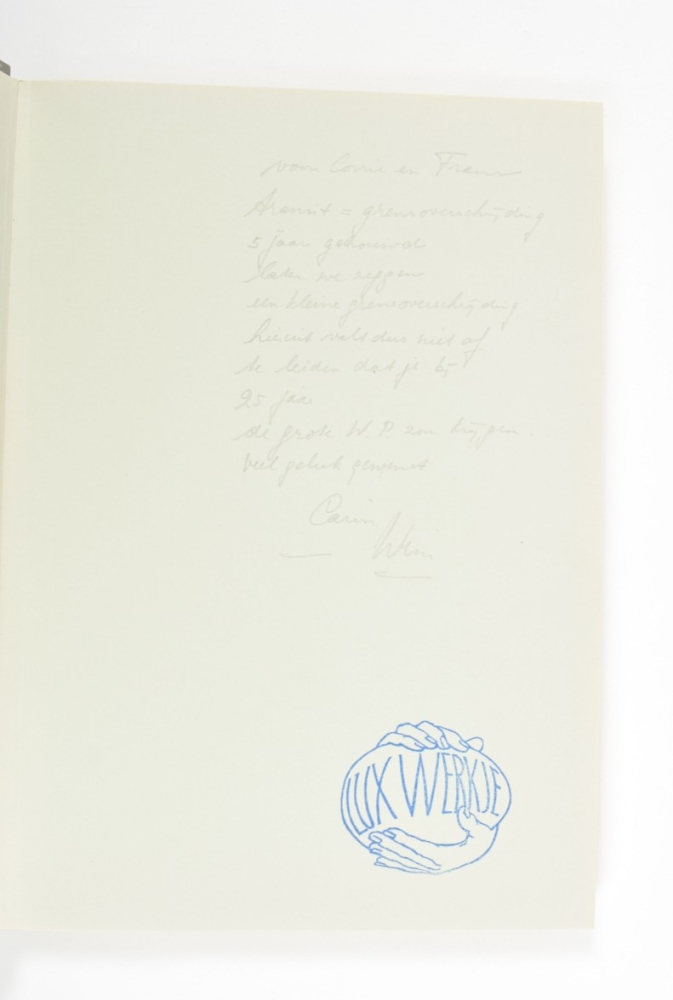 voor Corrie en Frans
= grensoverschrijding
5 jaar getrouwd
laten we zeggen
een kleine grensoverschrijding
niet af
te leiden dat je bij
25 jaar
de grote W.P. zou krijgen.
veel geluk gewenst
Carin
Wim
LUX WERKJE